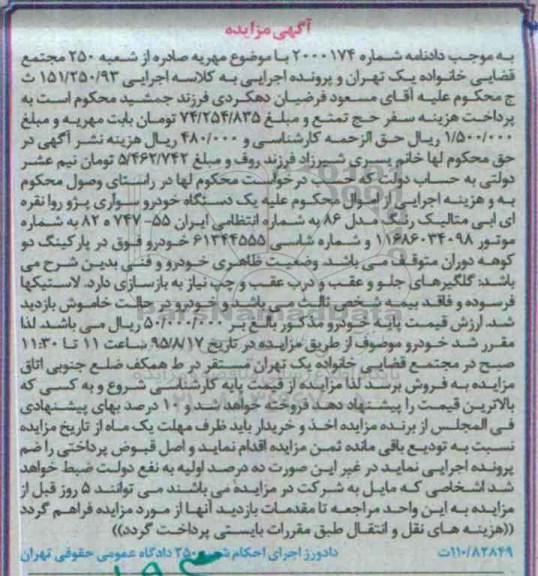 آگهی مزایده
به موجب دادنامه شماره ۲۰۰۰۱۷۴ با موضوع مهریه صادره از شعبه ۲۵۰ مجتمع
قضایی خانواده یک تهران و پرونده اجرایی به کلاسه اجرایی ۱۵۱/۲۵۰/۹۳ ث
ج محکوم علیه آقای مسعود فرضیان دهکردی فرزند جمشید محکوم است به
پرداخت هزینه سفر حج تمتع و مبلغ ۷۴/۲۵۴/۸۳۵ تومان بابت مهریه و مبلغ
۱/۵۰۰/۰۰۰ ریال حق الزحمه کارشناسی و ۴۸۰/۰۰۰ ریال هزینه نشر آگهی در
حق محکوم لها خانم یسری شیرزاد فرزند روف و مبلغ ۵/۴۶۲/۷۴۲ تومان نیم عشر
دولتی به حساب دولت که حسب درخواست محکوم لها در راستای وصول محکوم
به و هزینه اجرایی از اموال محکوم علیه یک دستگاه خودرو سواری پژو روا نقره
ای ابی متالیک رنگ مدل ۸۶ به شماره انتظامی ایران ۵۵- ۷۴۷ ه ۸۲ به شماره
موتور ۱۱۶۸۶۰۳۴۰۹۸ و شماره شاسی ۶۱۳۴۴۵۵۵ خودرو فوق در پارکینگ دو
کوهه دوران متوقف می باشد. وضعیت ظاهری خودرو و فنی بدین شرح می
باشد: گلگیرهای جلو و عقب و درب عقب و چپ نیاز به بازسازی دارد. لاستیکها
فرسوده و فاقد بیمه شخص ثالث می باشد و خودرو در حالت خاموش بازدید
شد. ارزش قیمت پایه خودرو مذکور بالغ بر ۵۰/۰۰۰/۰۰۰ ریال می باشد لذا
مقرر شد خودرو موصوف از طریق مزایده در تاریخ ۹۵/۸/۱۷ ساعت ۱۱ تا ۱۱:۳۰
صبح در مجتمع قضایی خانواده یک تهران مستقر در ط همکف ضلع جنوبی اتاق
مزایده به فروش برسد لذا مزایده از قیمت پایه کارشناسی شروع و به کسی که
بالاترین قیمت را پیشنهاد دهد فروخته خواهد شد و ۱۰ درصد بهای پیشنهادی
فی المجلس از برنده مزایده اخذ و خریدار باید ظرف مهلت یک ماه از تاریخ مزایده
نسبت به تودیع باقی مانده ثمن مزایده اقدام نماید و اصل قبوض پرداختی را ضم
پرونده اجرایی نماید در غیر این صورت ده درصد اولیه به نفع دولت ضبط خواهد
شد اشخاصی که مایل به شرکت در مزایده می باشند می توانند ۵ روز قبل از
مزایده به این واحد مراجعه تا مقدمات بازدید آنها از مورد مزایده فراهم گردد
((هزینه های نقل و انتقال طبق مقررات بایستی پرداخت گردد))
۱۱۰/۸۲۸۴۹ت دادورز اجرای احکام شعبه ۲۵۰ دادگاه عمومی حقوقی تهران